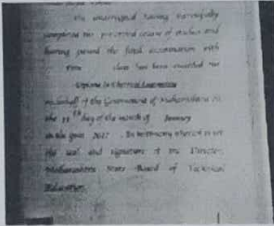 the undersigned having successfully
completed the prescribed course of studies and
having passed the final examination with
First class has been awarded the
Diploma In Chemical Engineering
on behalf of the Government of Maharashtra on
the 11th day of the month of January
in the year 2017. In testimony whereof is set
the seal and signature of the Director,
Maharashtra State Board of Technical
Education.